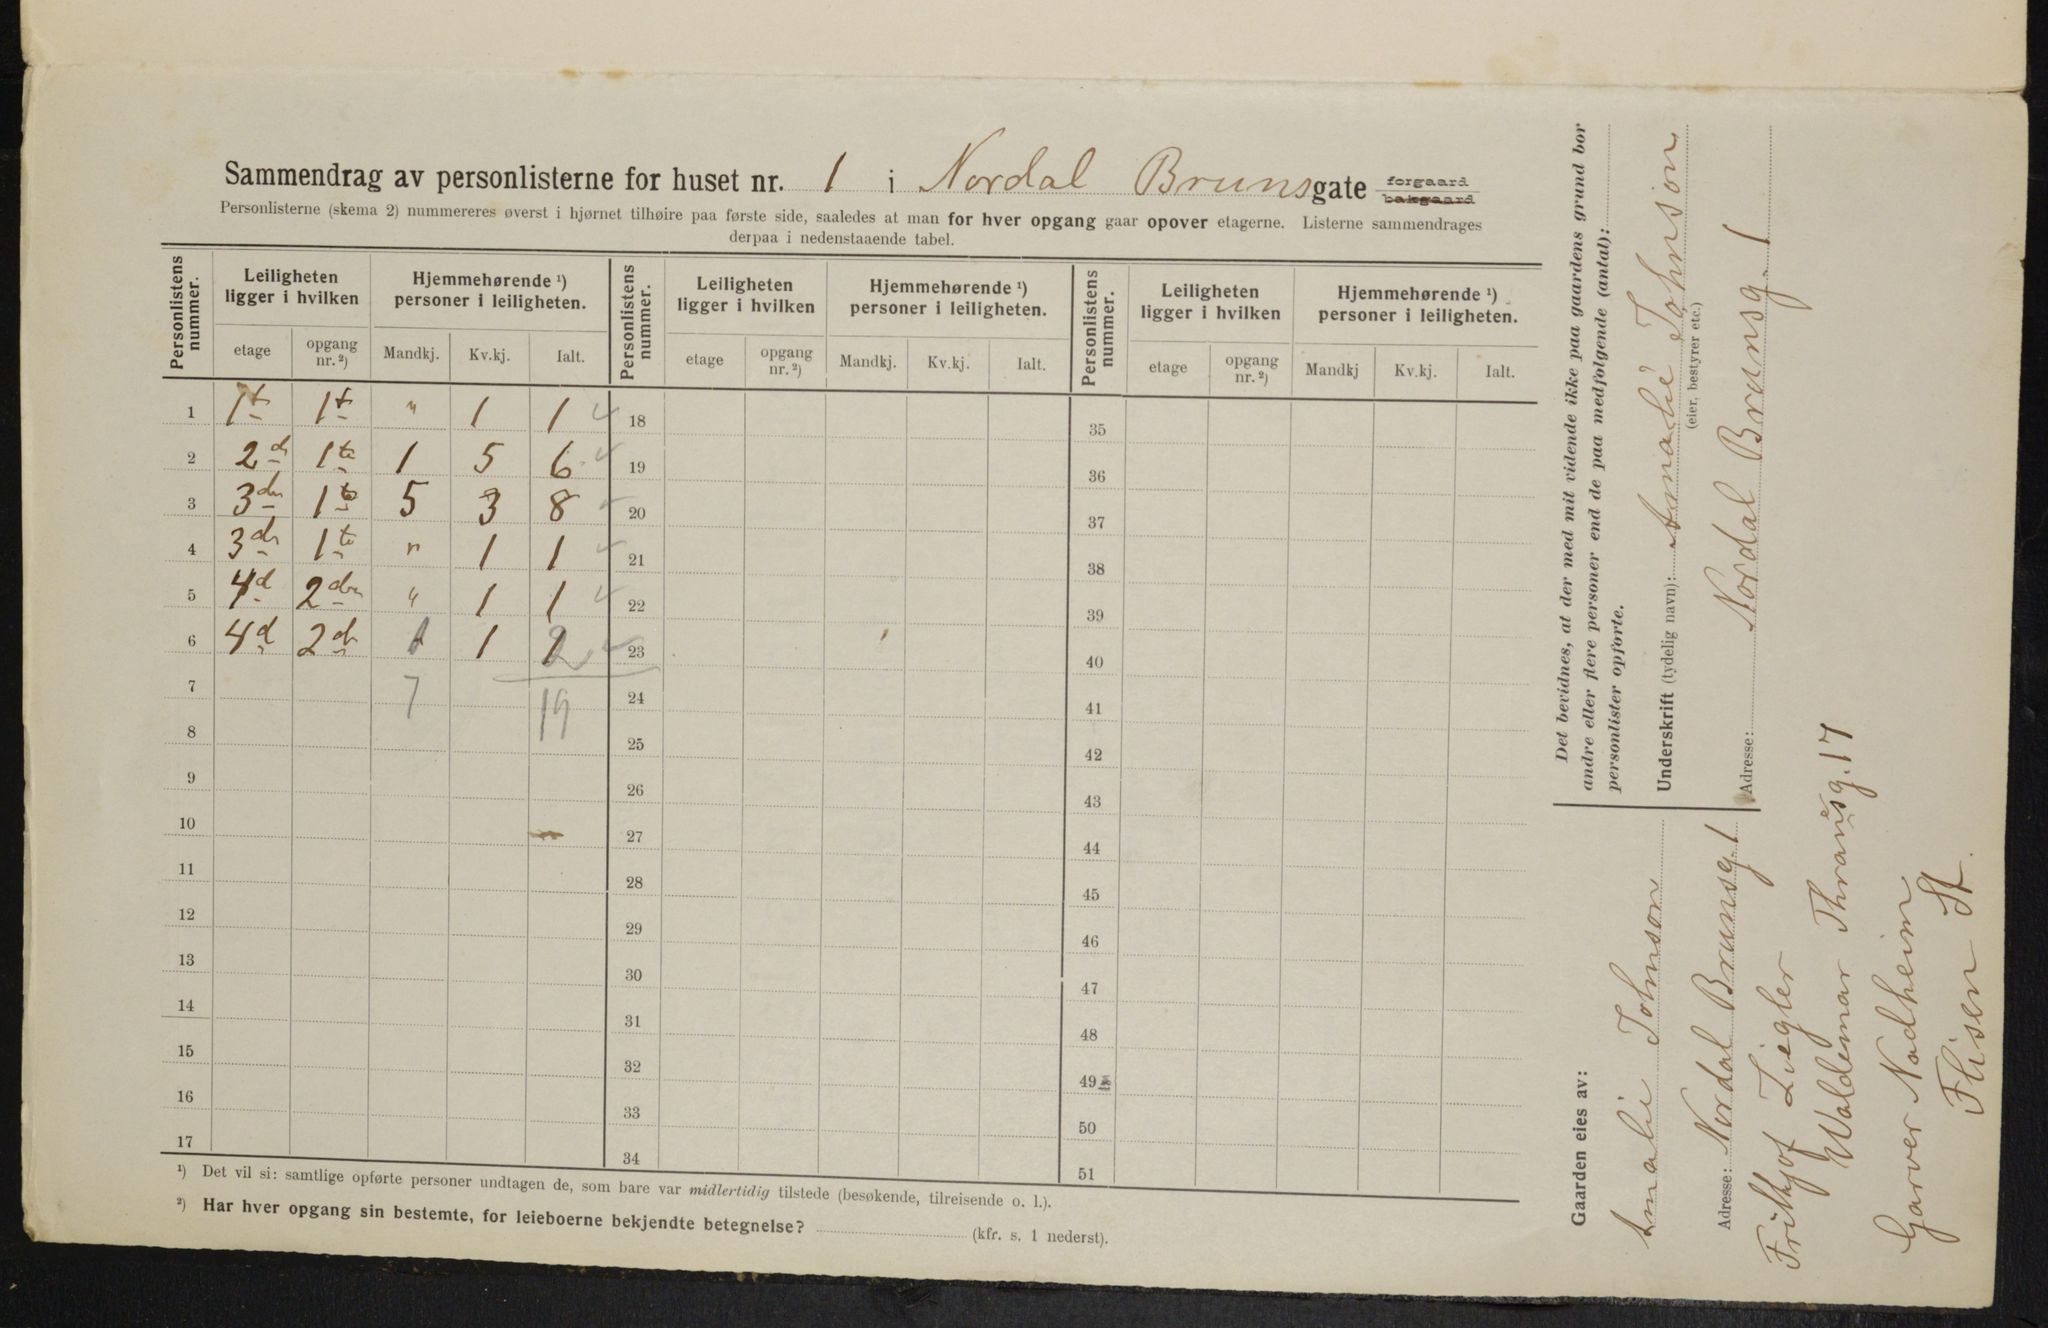 Sammendrag av personlisterne for huset nr. 1 i Nordal Brunsgate forgaard bakgaard
Personlisterne (skema 2) nummereres øverst i hjørnet tilhøire paa første side, saaledes at man for hver opgang gaar opover etagerne. Listerne sammendrages
derpaa i nedenstaaende tabel.
Personlistens nummer. Leiligheten ligger i hvilken Hjemmehørende ¹) personer i leiligheten. Personlistens nummer. Leiligheten ligger i hvilken Hjemmehørende ¹) personer i leiligheten. Personlistens nummer. Leiligheten ligger i hvilken Hjemmehørende ¹) personer i leiligheten.
etage opgang nr. ²) Mandkj. Kv.kj. Ialt. etage opgang nr. ²) Mandkj. Kv.kj. Ialt. etage opgang nr. ²) Mandkj Kv.kj. Ialt.
1 1t 1t " 1 1 18 35
2 2dn 1te 1 5 6 19 36
3 3dn 1te 5 3 8 20 37
4 3dn 1te " 1 1 21 38
5 4d 2den " 1 1 22 39
6 4d 2dn 1 1 2 23 40
7 7 24 41
8 19 25 42
9 26 43
10 27 44
11 28 45
12 29 46
13 30 47
14 31 48
15 32 49
16 33 50
17 34 51
¹) Det vil si: samtlige opførte personer undtagen de, som bare var midlertidig tilstede (besøkende, tilreisende o. l.).
²) Har hver opgang sin bestemte, for leieboerne bekjendte betegnelse? (kfr. s. 1 nederst).
Det bevidnes, at der med mit vidende ikke paa gaardens grund bor
andre eller flere personer end de paa medfølgende (antal):
personlister opførte.
Underskrift (tydelig navn): Amalie Johnson
(eier, bestyrer etc.)
Adresse: Nordal Brunsg. 1
Gaarden eies av:
Amalie Johnson
Adresse: Nordal Brunsg. 1
Frithjof Ziegler
Waldemar Thranesg. 17
Garver Nadheim
Flisen St.